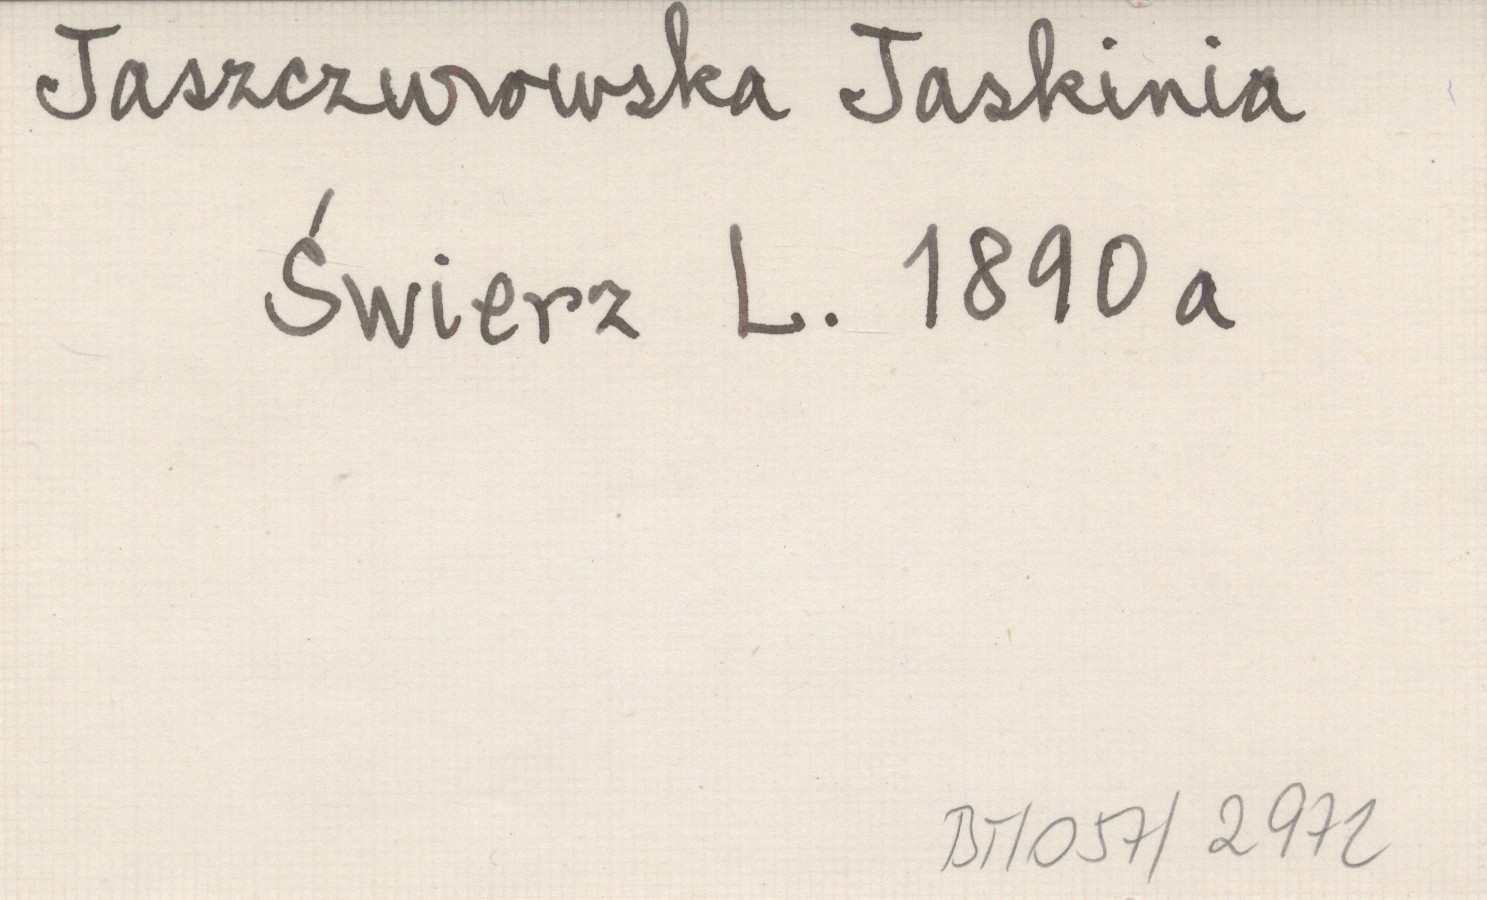 Jaszczurowska Jaskinia
Świerz L. 1890 a
BT/057/ 2972